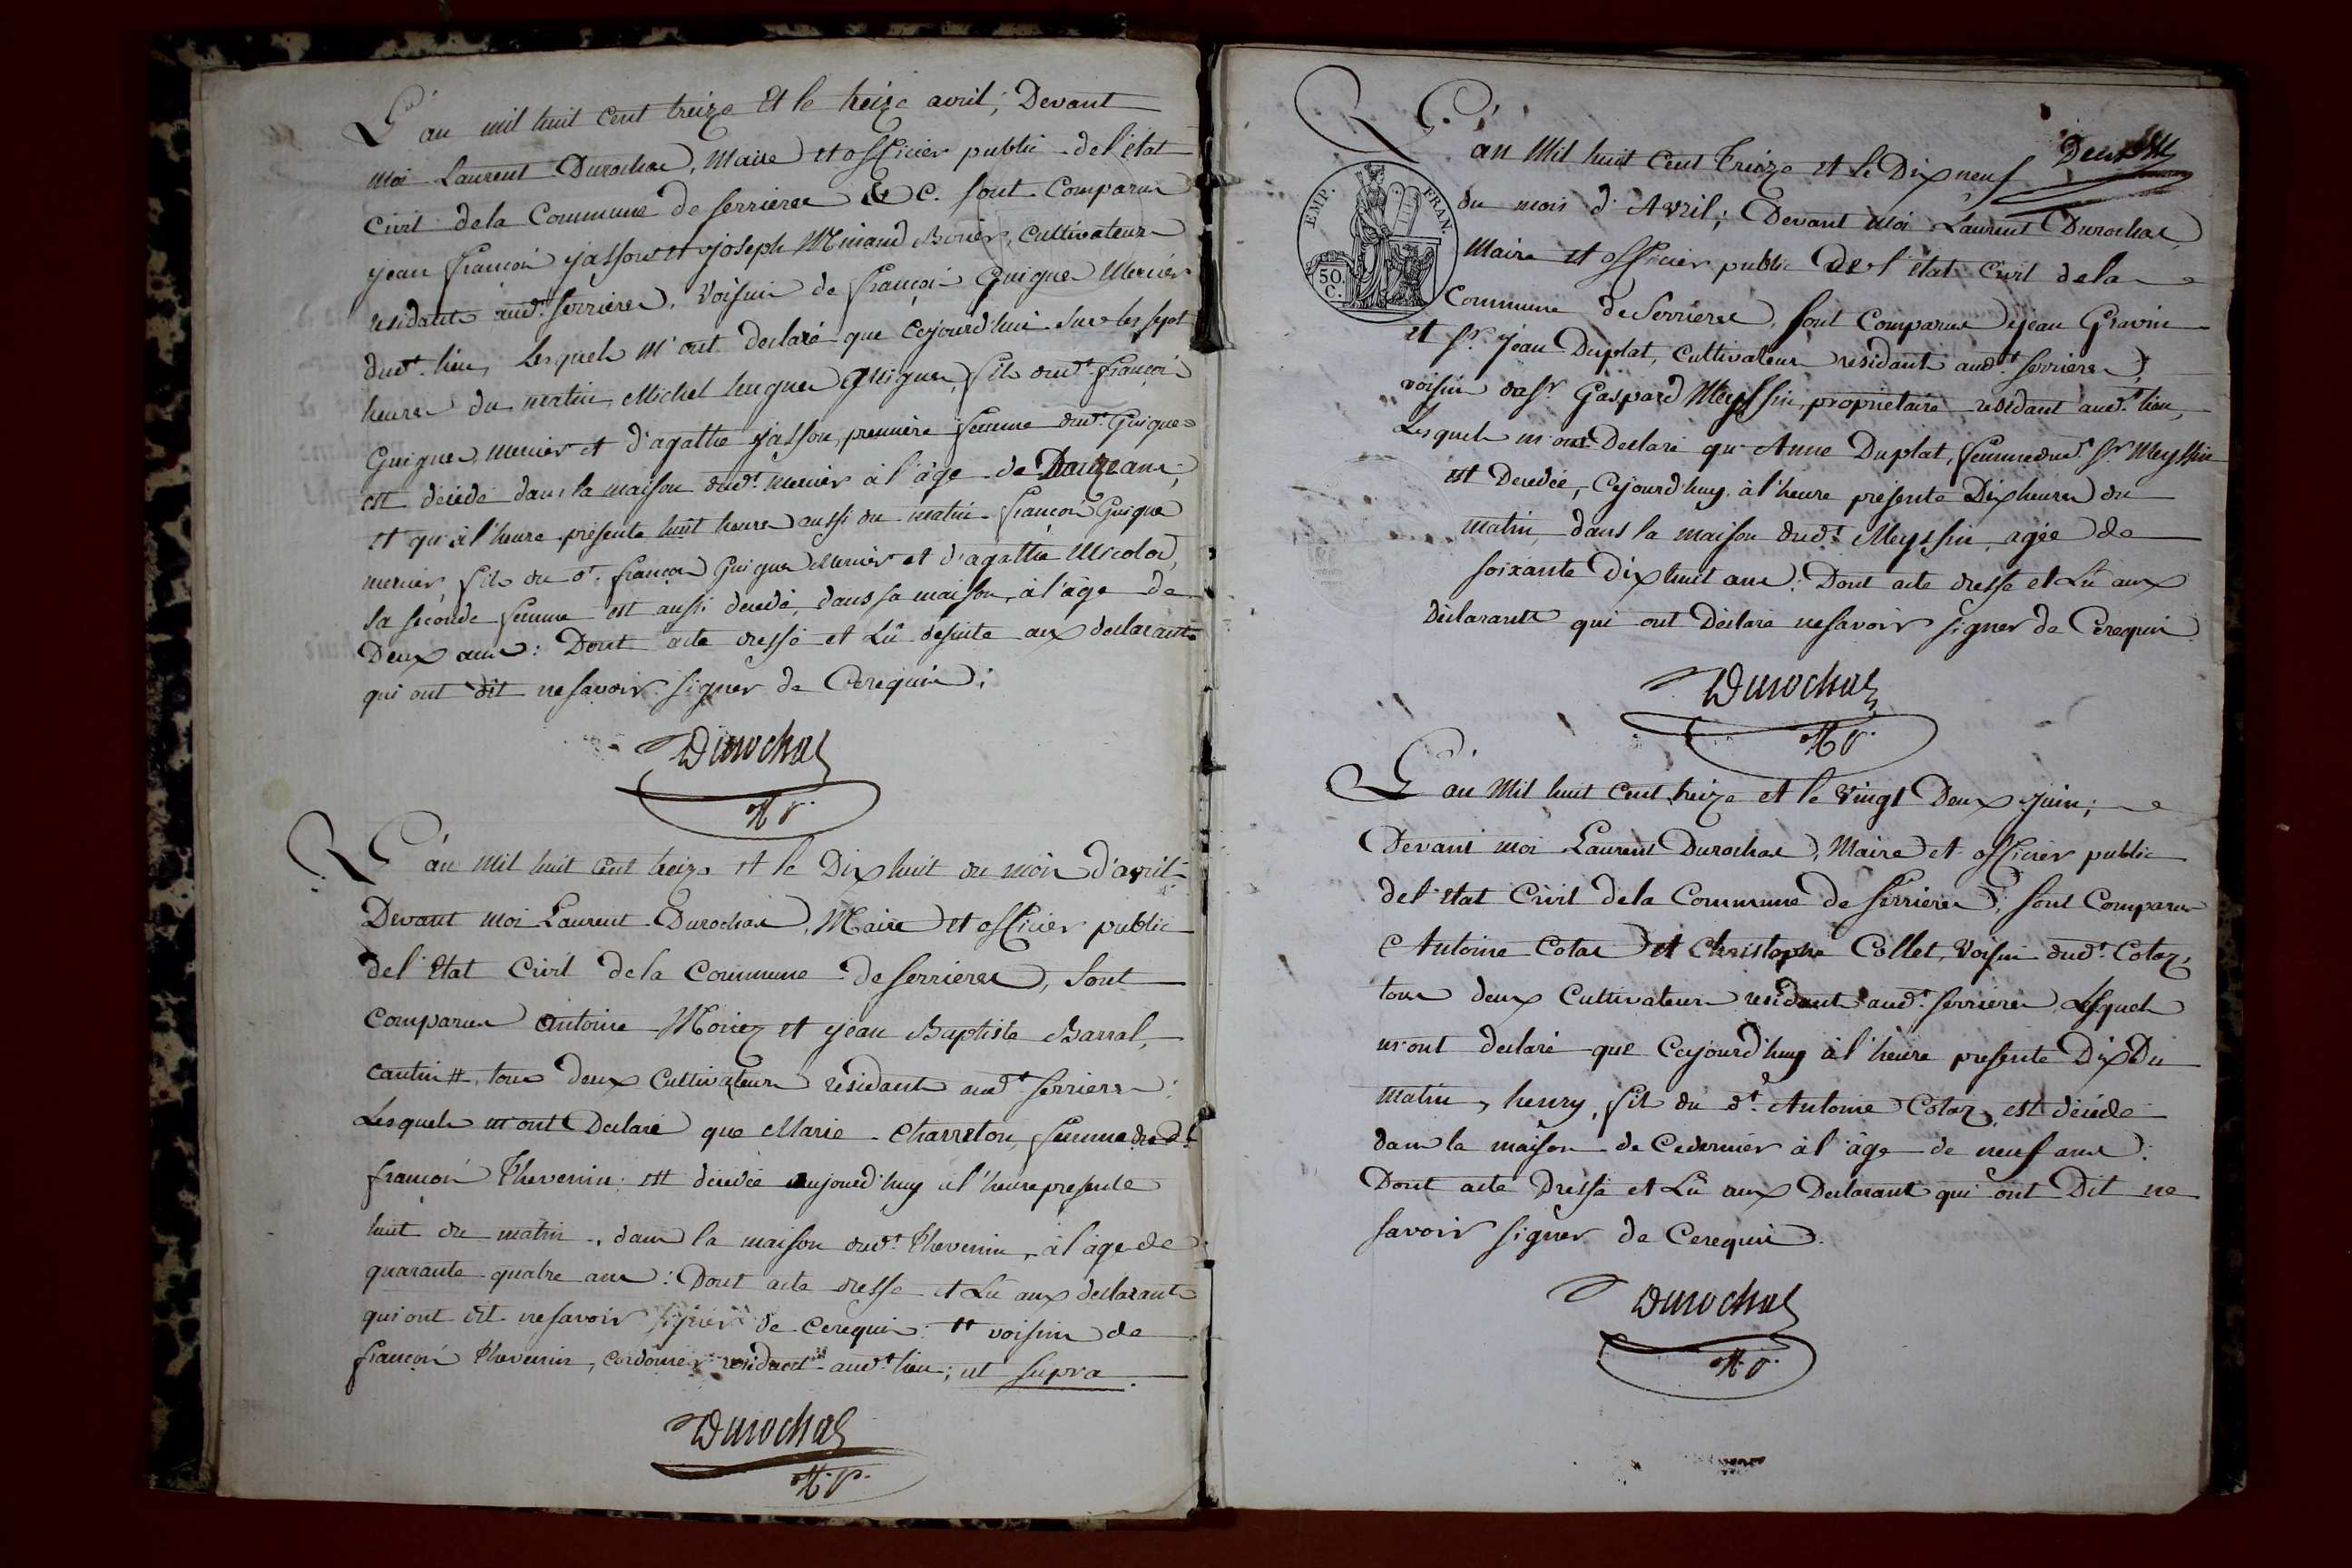 L'an mil huit Cent treize Et le treize avril; Devant
moi Laurent Durochat, Maire et officier public de l'état
Civil de la Commune de serrieres & C. sont Comparus
jean françois jasson et joseph Minaud Borier, Cultivateurs
residants aud.t serrieres, Voisins de françois Guigue Mercier
dud.t lieu, Lesquels M'ont declaré que Cejourd'hui sur les sept
heures du matin Michel hugues Guigues, fils dud.t françois
Guigues, Mercier et d'agathe jasson, premiere femme dud.t Guigue=
est décédé dans la maison dud.t Mercier à l'âge de ans;
et qu'à l'heure presente huit heures aussi du matin françois Guigue
mercier, fils du d.t françois Guigues Mercier et d'agathe Micolod,
sa seconde femme est aussi decedé, dans sa maison, à l'âge de
Deux ans: Dont acte dressé et Lû desuite aux declarants
qui ont dit ne savoir signer de Cerequis;
Durochat
M.r
L'an Mil huit Cent treize et le Dix huit du mois d'avril
Devant moi Laurent Durochat, Maire et officier public
del'Etat Civil de la Commune de serrieres, sont
Comparus antoine Moiroz et jean Baptiste Barral,
cantin #, tous deux Cultivateurs résidants aud.t serrieres:
Lesquels m'ont Declaré que Marie Charreton, femme dud.t
françois Thevenin est décédée aujourd'huy à l'heure presente
huit du matin, dans la maison dud.t Thevenin, à l'âge de
quarante quatre ans: Dont acte dressé et Lû aux declarants
qui ont dit ne savoir signer de Cerequis: # voisins de
françois Thevenin, Cordonier résidant aud.t lieu; ut supra.
Durochat
M.r
L'an Mil huit Cent Treize et le Dix neuf
du mois d'Avril; Devant moi Laurent Durochat,
EMP. FRAN.
50. C.
Maire et officier public de l'état Civil de la
Commune de Serrieres, sont Comparus jean Gravin
et S.r jean Duplat, Cultivateurs residants aud.t serrieres,
voisins du S.r Gaspard Meyssin, proprietaire residant aud.t lieu,
Lesquels m'ont Declaré qu'Anne Duplat, femme dud.t S.r Meyssin
est Decedée, Cejourd'huy à l'heure présente Dix heures du
matin, dans la maison dud.t Meyssin, agée de
soixante Dix huit ans: Dont acte dressé et Lû aux
Déclarants qui ont Déclaré ne savoir signer de Cerequis.
Durochat
M.r
L'an Mil huit Cent treize et le Vingt Deux juin;
Devant moi Laurent Durochat, Maire et officier public
del'Etat Civil de la Commune de serrieres; sont Comparus
Antoine Cotaz et Christophe Collet, Voisin dud.t Cotaz,
tous deux Cultivateurs residants aud.t serrieres Lesquels
m'ont declaré que Cejourd'huy à l'heure presente Dix Du
matin, henry, fils du d.t Antoine Cotaz, est décédé
dans la maison de Cedernier à l'âge de neuf ans:
Dont acte Dressé et Lû aux Declarants qui ont Dit ne
savoir signer de Cerequis.
Durochat
M.r